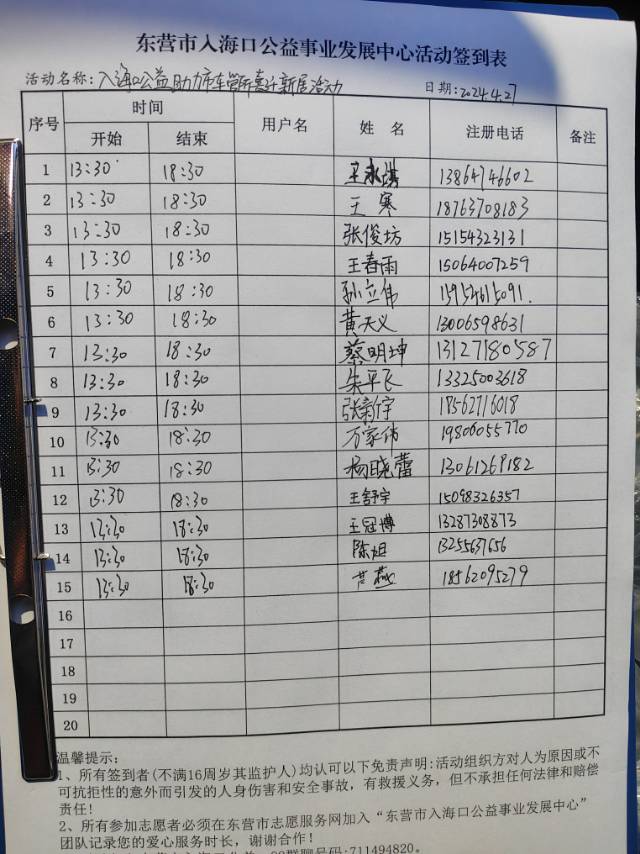 东营市入海口公益事业发展中心活动签到表
活动名称：入海口公益助力市车管所喜迁新居活动 日期：2024.4.27
序号 时间 用户名 姓 名 注册电话 备注
开始 结束
1 13:30 18:30 王永琪 13864746602
2 13:30 18:30 王寒 18763708183
3 13:30 18:30 张俊坊 15154323131
4 13:30 18:30 王春雨 15064007259
5 13:30 18:30 孙立伟 15954615091.
6 13:30 18:30 黄天义 13006598631
7 13:30 18:30 蔡明坤 13127180587
8 13:30 18:30 朱平飞 13325003618
9 13:30 18:30 张新宇 18562716018
10 13:30 18:30 万家伟 19806055770
11 13:30 18:30 杨晓蕾 13061269182
12 13:30 18:30 王舒宇 15098326357
13 13:30 18:30 王冠博 13287308873
14 13:30 18:30 陈旭 13255637656
15 13:30 18:30 芦燕 18562095279
16
17
18
19
20
温馨提示：
1、所有签到者(不满16周岁其监护人)均认可以下免责声明：活动组织方对人为原因或不
可抗拒性的意外而引发的人身伤害和安全事故，有救援义务，但不承担任何法律和赔偿
责任！
2、所有参加志愿者必须在东营市志愿服务网加入“东营市入海口公益事业发展中心”
团队记录您的爱心服务时长，谢谢合作！
群聊号码：711494820。